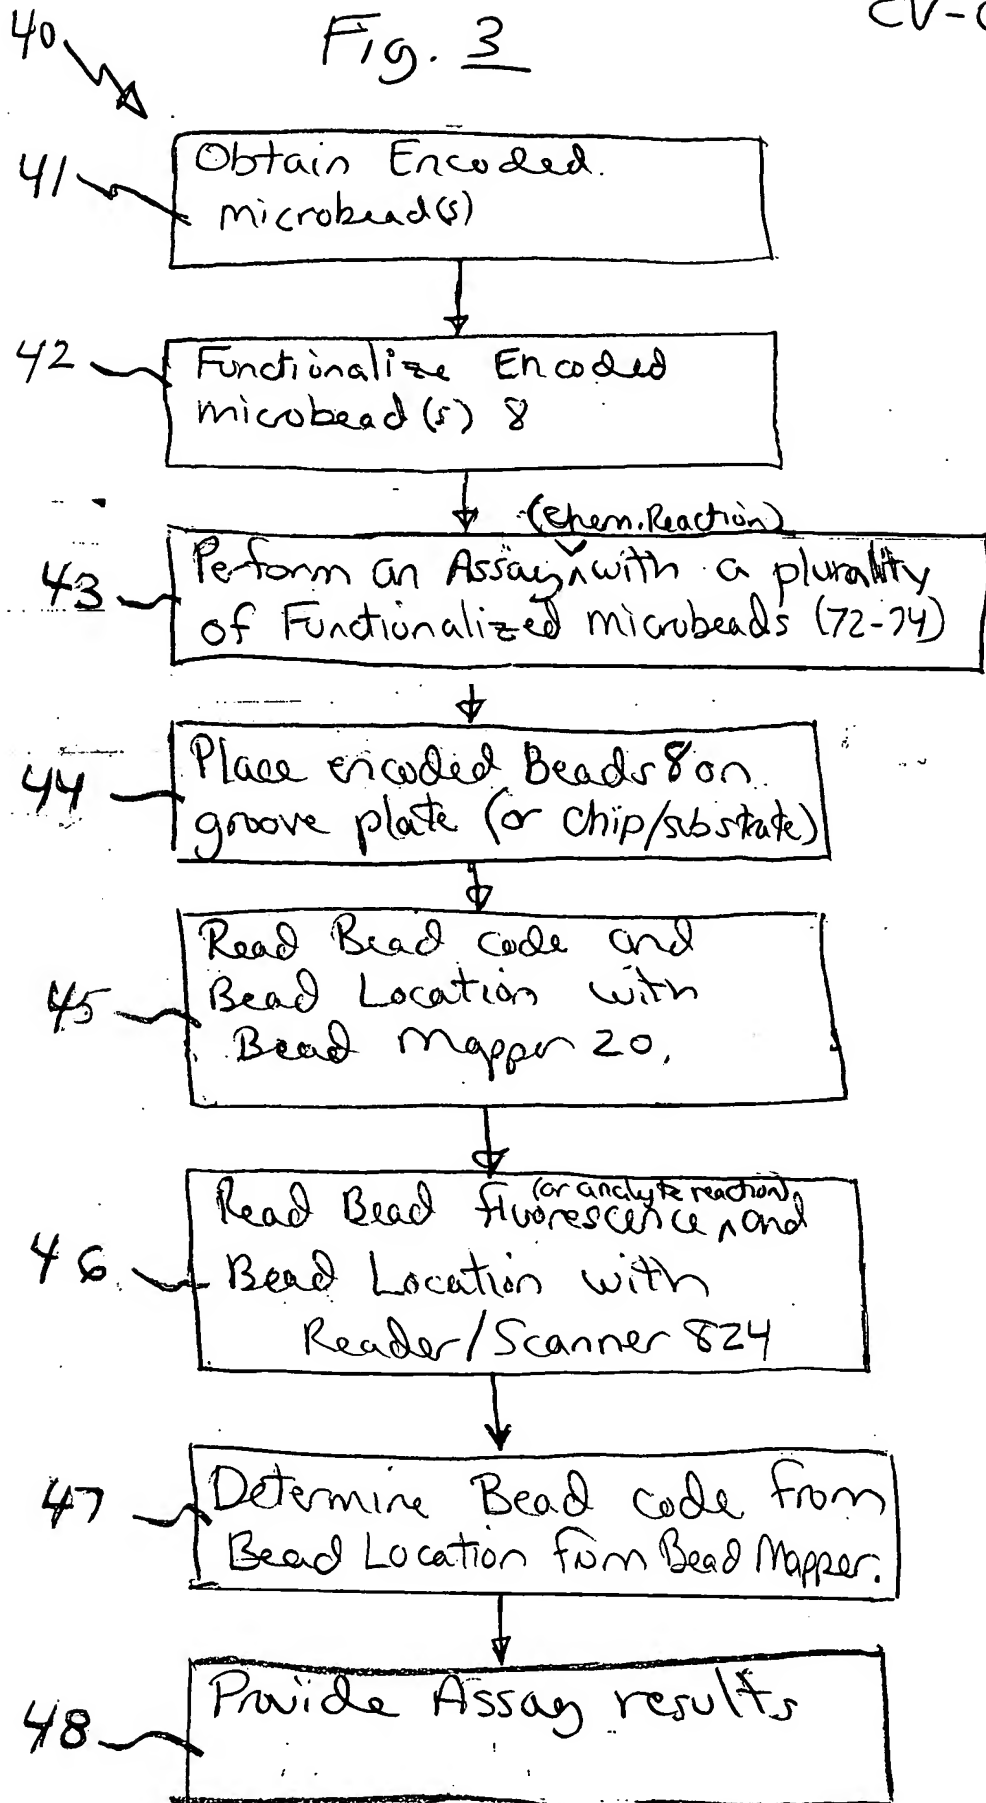 40
Fig. 3
CV-
41
Obtain Encoded.
microbead(s)
42
Functionalize Encoded
microbead(s) 8
(Chem. Reaction)
43
Perform an Assay ^ with a plurality
of Functionalized microbeads (72-74)
44
Place encoded Beads 8 on
groove plate (or chip/substrate)
45
Read Bead code and
Bead Location with
Bead Mapper 20.
(or analyte reaction)
46
Read Bead fluorescence ^ and
Bead Location with
Reader/Scanner 824
47
Determine Bead code from
Bead Location from Bead Mapper.
48
Provide Assay results